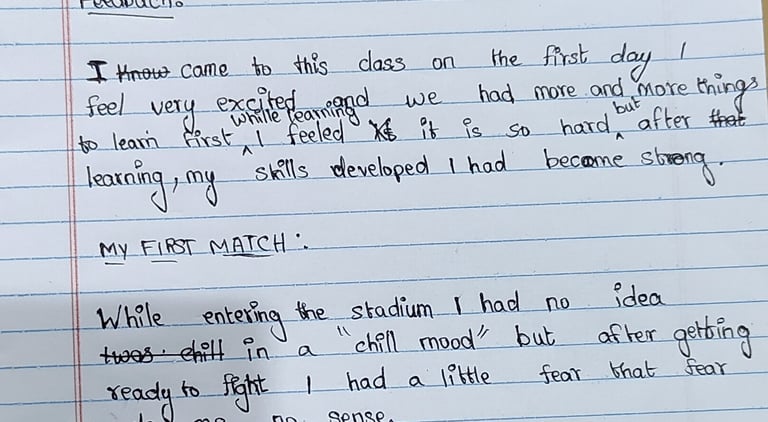 Feedback:
I know came to this class on the first day I
feel very excited and we had more and more things
while learning but
to learn first, I feeled it is so hard, after that
learning, my skills developed I had become strong.
MY FIRST MATCH :
While entering the stadium I had no idea
twos. chill in a "chill mood" but after getting
ready to fight I had a little fear that fear
no sense.